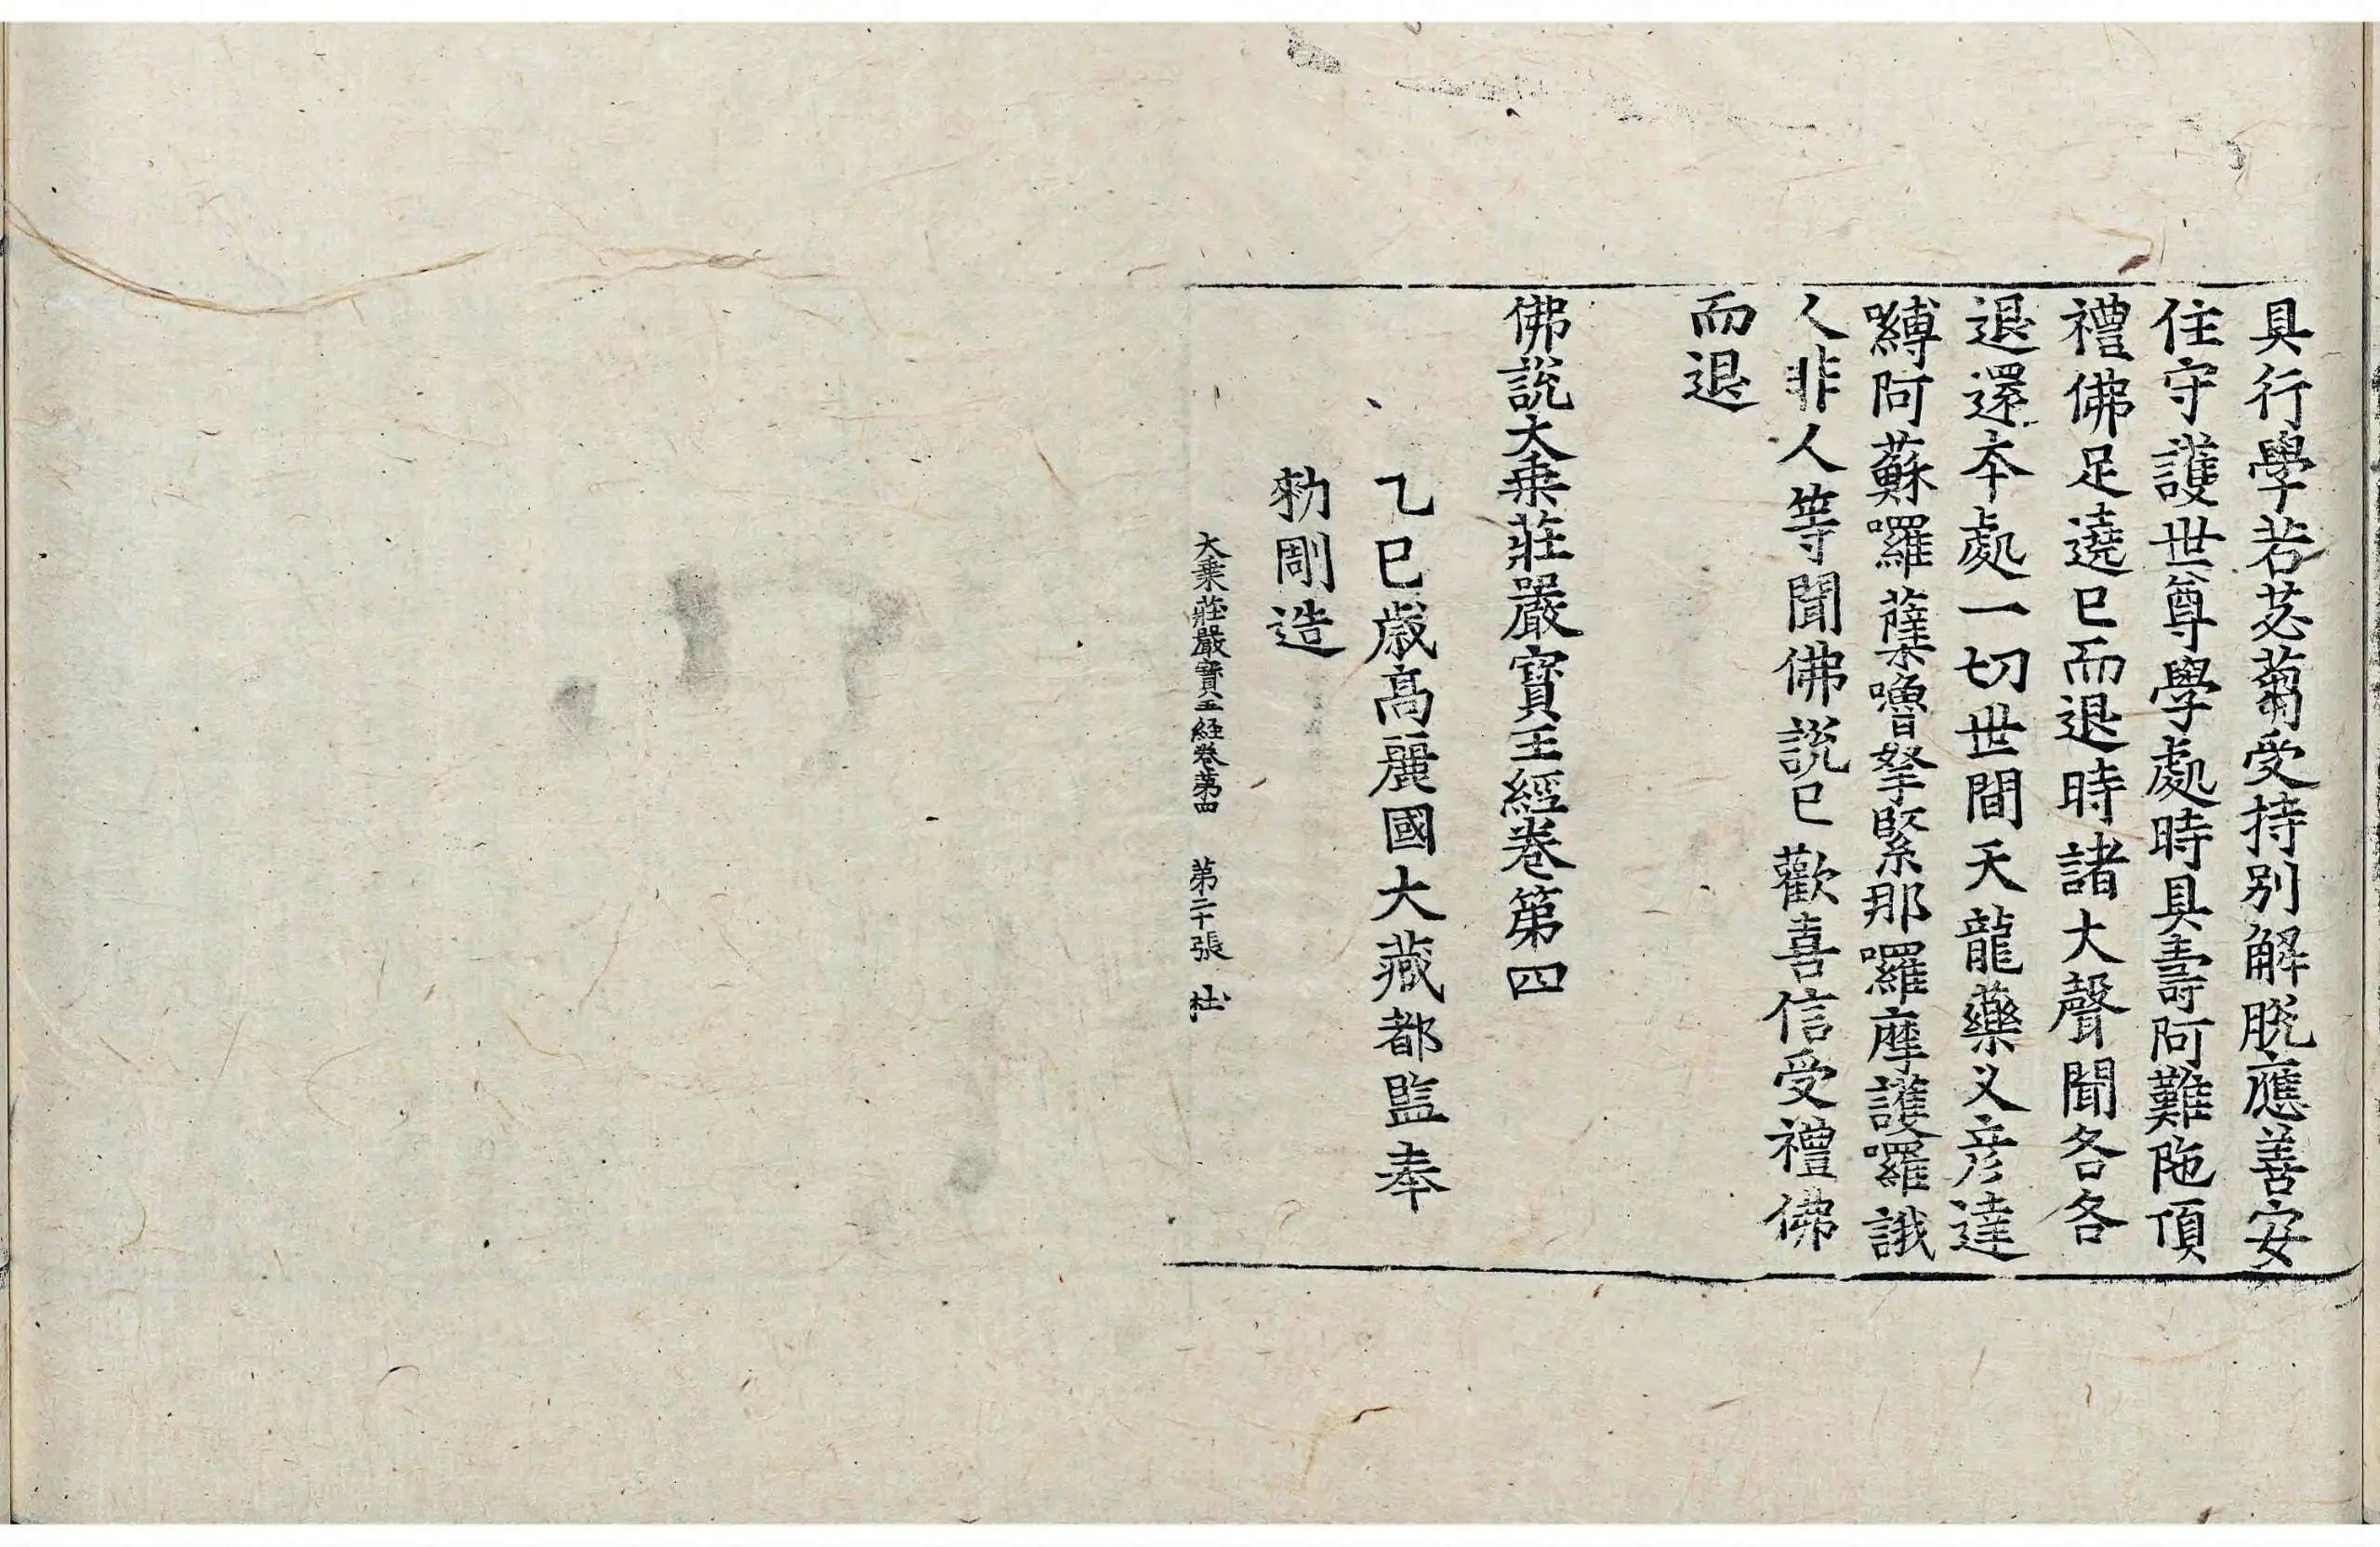 具行學若苾蒭受持別解脫應善安
住守護世尊學處時具壽阿難陁頂
禮佛足遶已而退時諸大聲聞各各
退還本處一切世間天龍藥叉彦達
嚩阿蘇囉薩嚕拏緊那囉摩護囉誐
人非人等聞佛說已歡喜信受禮佛
而退
佛說大乗莊嚴寳王經卷第四
乙巳歳高麗國大藏都監奉
勅彫造
大乗莊嚴寳王経卷第四 第二十張 杜